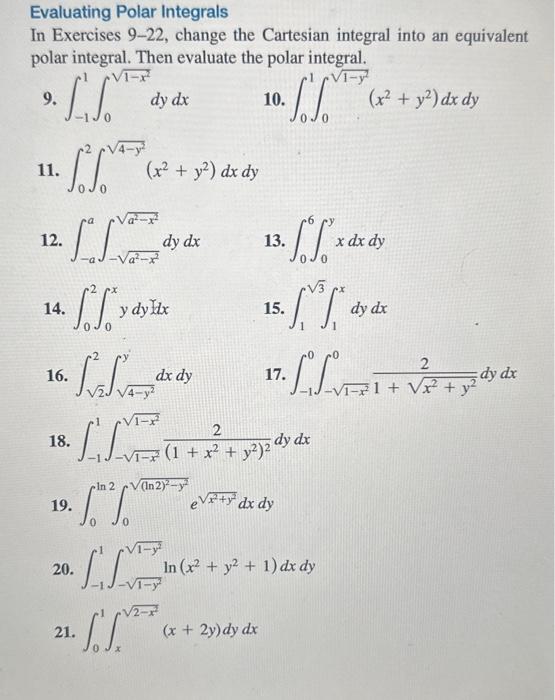 Evaluating Polar Integrals
In Exercises 9–22, change the Cartesian integral into an equivalent
polar integral. Then evaluate the polar integral.
9. ∫_{-1}^{1} ∫_{0}^{√(1−x²)} dy dx 10. ∫_{0}^{1} ∫_{0}^{√(1−y²)} (x² + y²) dx dy
11. ∫_{0}^{2} ∫_{0}^{√(4−y²)} (x² + y²) dx dy
12. ∫_{-a}^{a} ∫_{-√(a²−x²)}^{√(a²−x²)} dy dx 13. ∫_{0}^{6} ∫_{0}^{y} x dx dy
14. ∫_{0}^{2} ∫_{0}^{x} y dy dx 15. ∫_{1}^{√3} ∫_{1}^{x} dy dx
16. ∫_{√2}^{2} ∫_{√(4−y²)}^{y} dx dy 17. ∫_{-1}^{0} ∫_{-√(1−x²)}^{0} 2/(1 + √(x² + y²)) dy dx
18. ∫_{-1}^{1} ∫_{-√(1−x²)}^{√(1−x²)} 2/(1 + x² + y²)² dy dx
19. ∫_{0}^{ln 2} ∫_{0}^{√((ln 2)²−y²)} e^{√(x²+y²)} dx dy
20. ∫_{-1}^{1} ∫_{-√(1−y²)}^{√(1−y²)} ln (x² + y² + 1) dx dy
21. ∫_{0}^{1} ∫_{x}^{√(2−x²)} (x + 2y) dy dx